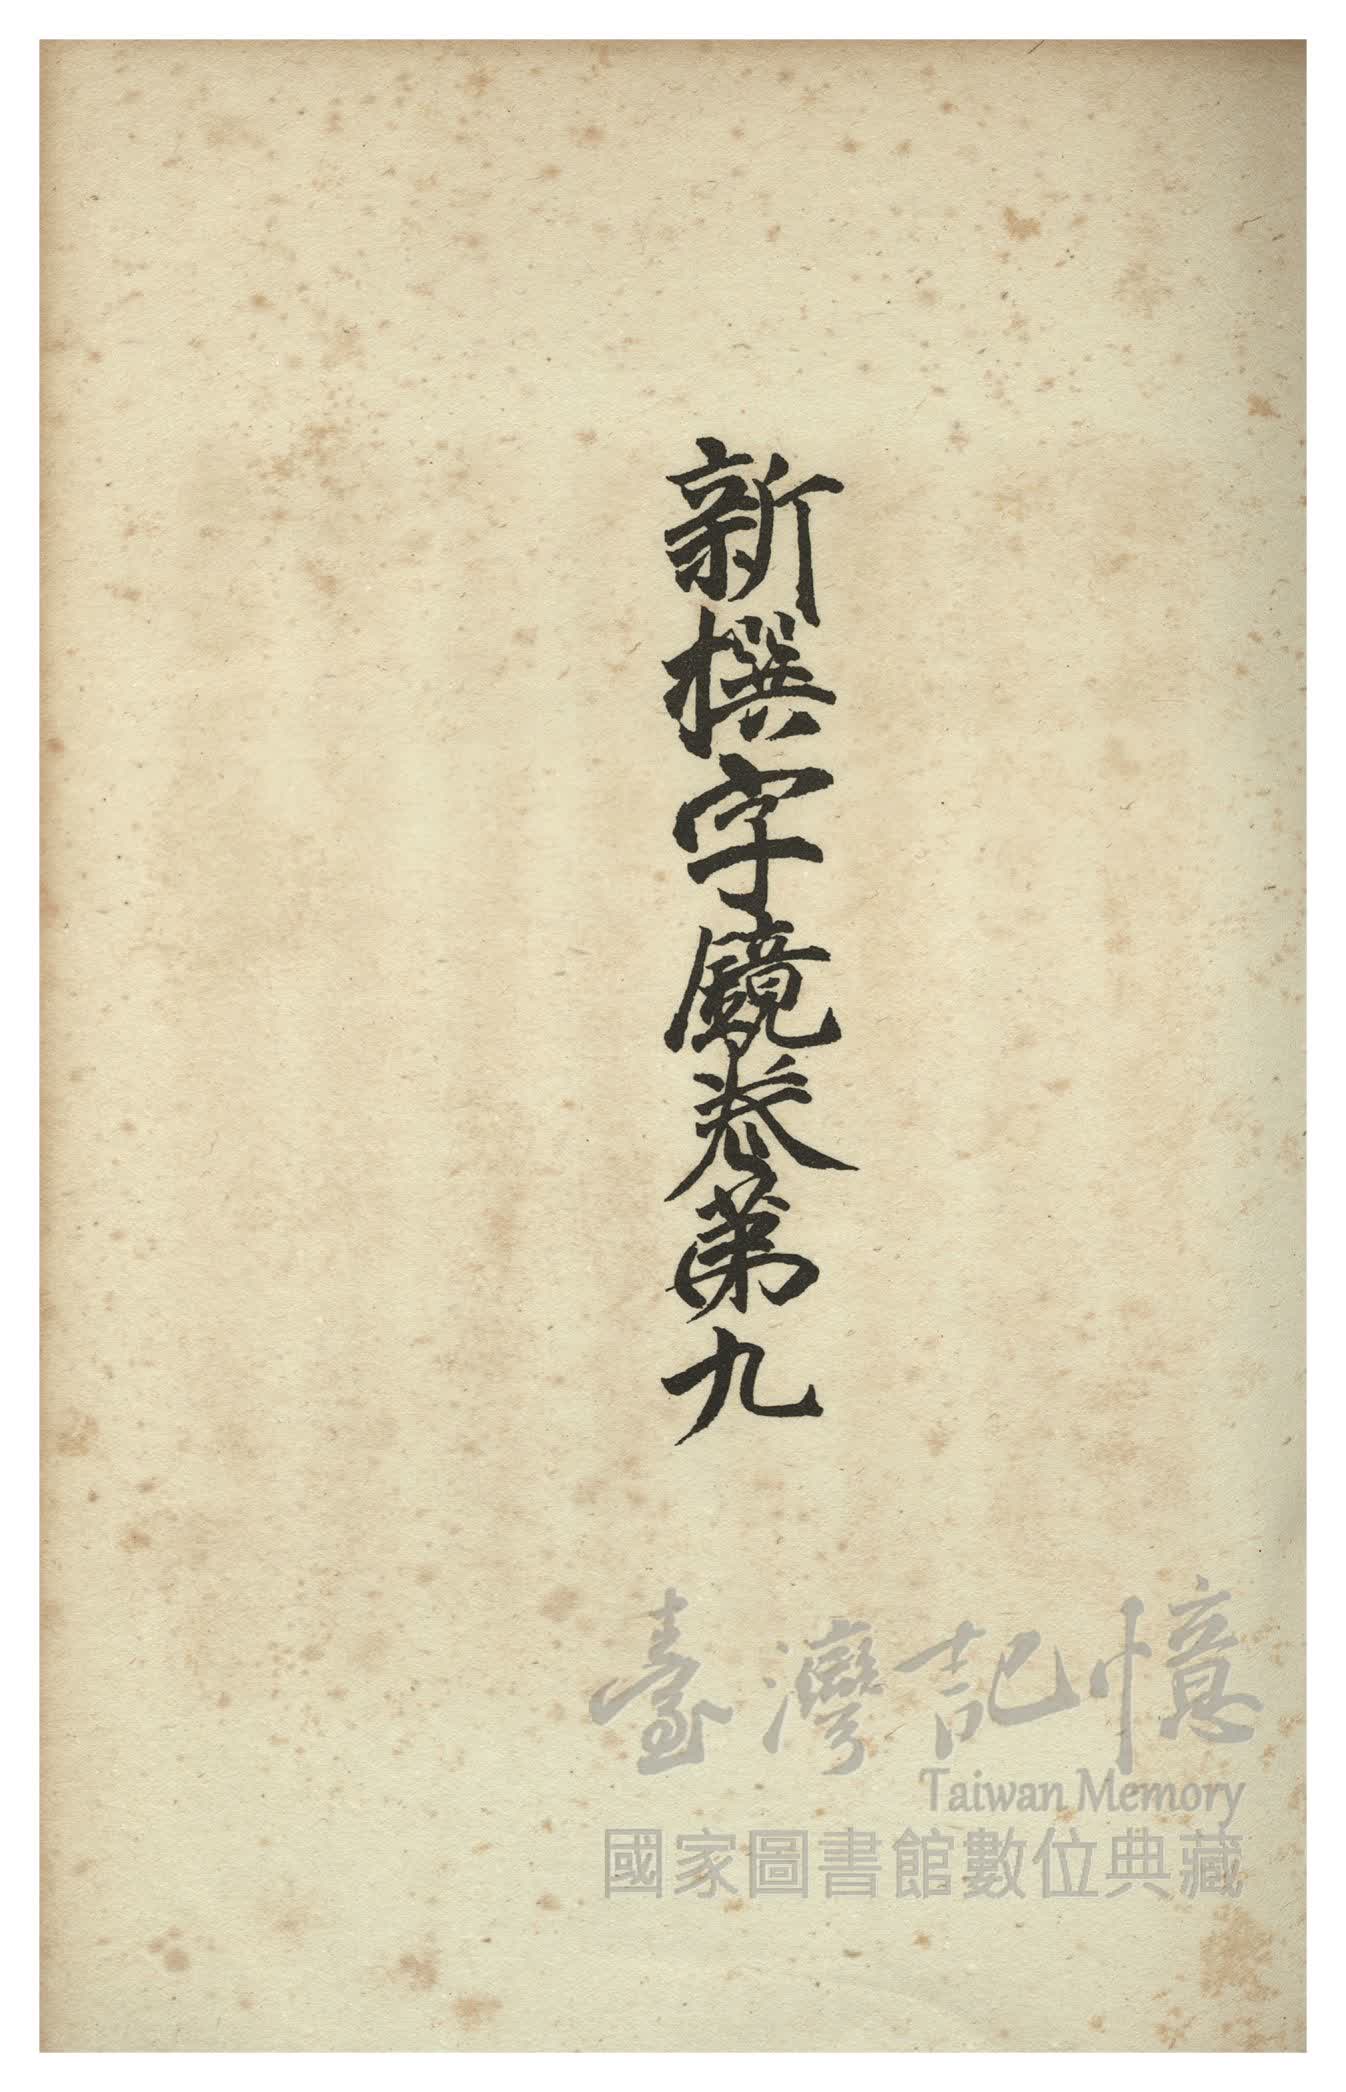 新撰字鏡卷第九
臺灣記憶
Taiwan Memory
國家圖書館數位典藏